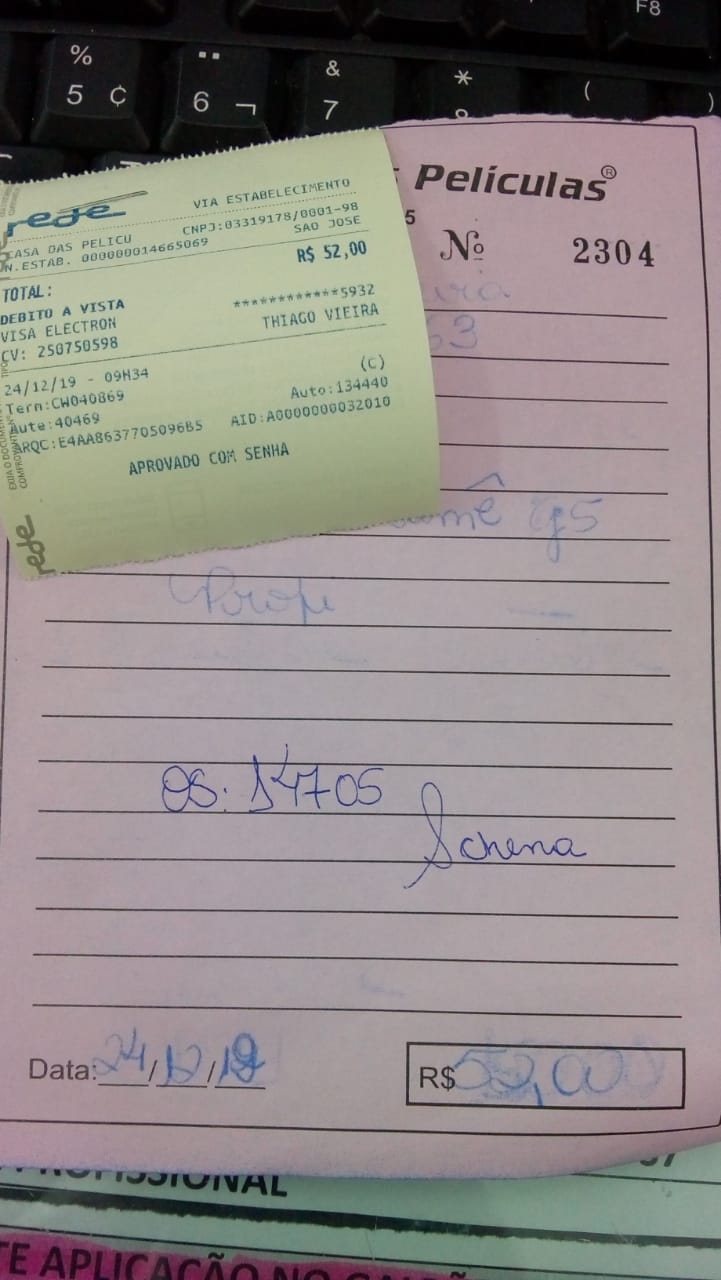 F8
%
5 ¢
¨
6 ¬
&
7
*
(
)
Películas®
5
Nº 2304
rede
VIA ESTABELECIMENTO
CASA DAS PELICU CNPJ:03319178/0001-98
N.ESTAB. 000000014665069 SAO JOSE
TOTAL: R$ 52,00
DEBITO A VISTA
VISA ELECTRON ************5932
CV: 250750598 THIAGO VIEIRA
24/12/19 - 09H34 (C)
Term:CW040869 Auto:134440
Aute:40469 AID:A0000000032010
ARQC:E4AA8637705096B5
APROVADO COM SENHA
rede
63
g5
OS: 14705
Schena
Data: 24/12/19
R$ 52,00
TE APLICAÇÃO NO